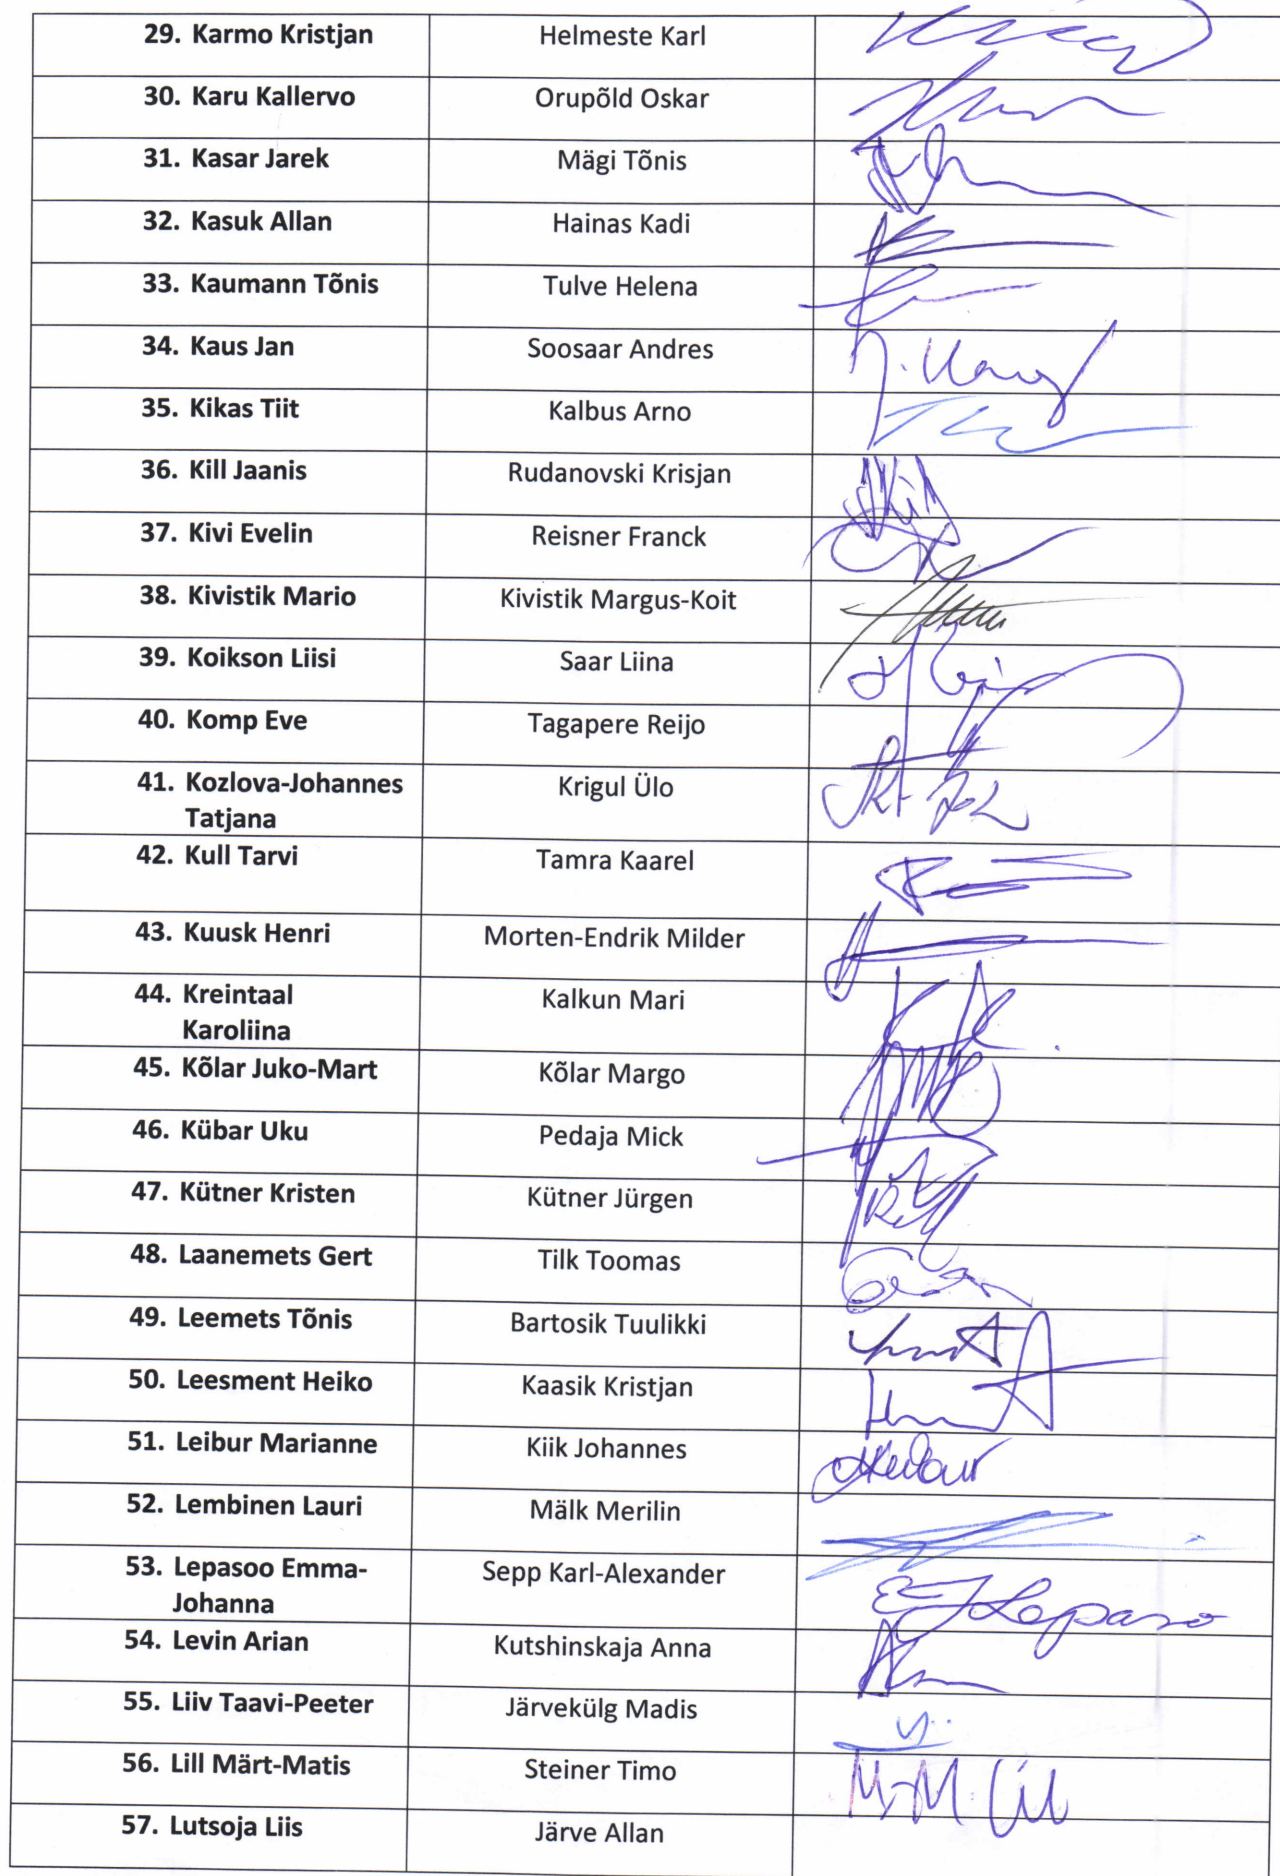 29. Karmo Kristjan Helmeste Karl
30. Karu Kallervo Orupõld Oskar
31. Kasar Jarek Mägi Tõnis
32. Kasuk Allan Hainas Kadi
33. Kaumann Tõnis Tulve Helena
34. Kaus Jan Soosaar Andres
35. Kikas Tiit Kalbus Arno
36. Kill Jaanis Rudanovski Krisjan
37. Kivi Evelin Reisner Franck
38. Kivistik Mario Kivistik Margus-Koit
39. Koikson Liisi Saar Liina
40. Komp Eve Tagapere Reijo
41. Kozlova-Johannes Krigul Ülo
Tatjana
42. Kull Tarvi Tamra Kaarel
43. Kuusk Henri Morten-Endrik Milder
44. Kreintaal Kalkun Mari
Karoliina
45. Kõlar Juko-Mart Kõlar Margo
46. Kübar Uku Pedaja Mick
47. Kütner Kristen Kütner Jürgen
48. Laanemets Gert Tilk Toomas
49. Leemets Tõnis Bartosik Tuulikki
50. Leesment Heiko Kaasik Kristjan
51. Leibur Marianne Kiik Johannes
52. Lembinen Lauri Mälk Merilin
53. Lepasoo Emma- Sepp Karl-Alexander
Johanna
54. Levin Arian Kutshinskaja Anna
55. Liiv Taavi-Peeter Järvekülg Madis
56. Lill Märt-Matis Steiner Timo
57. Lutsoja Liis Järve Allan